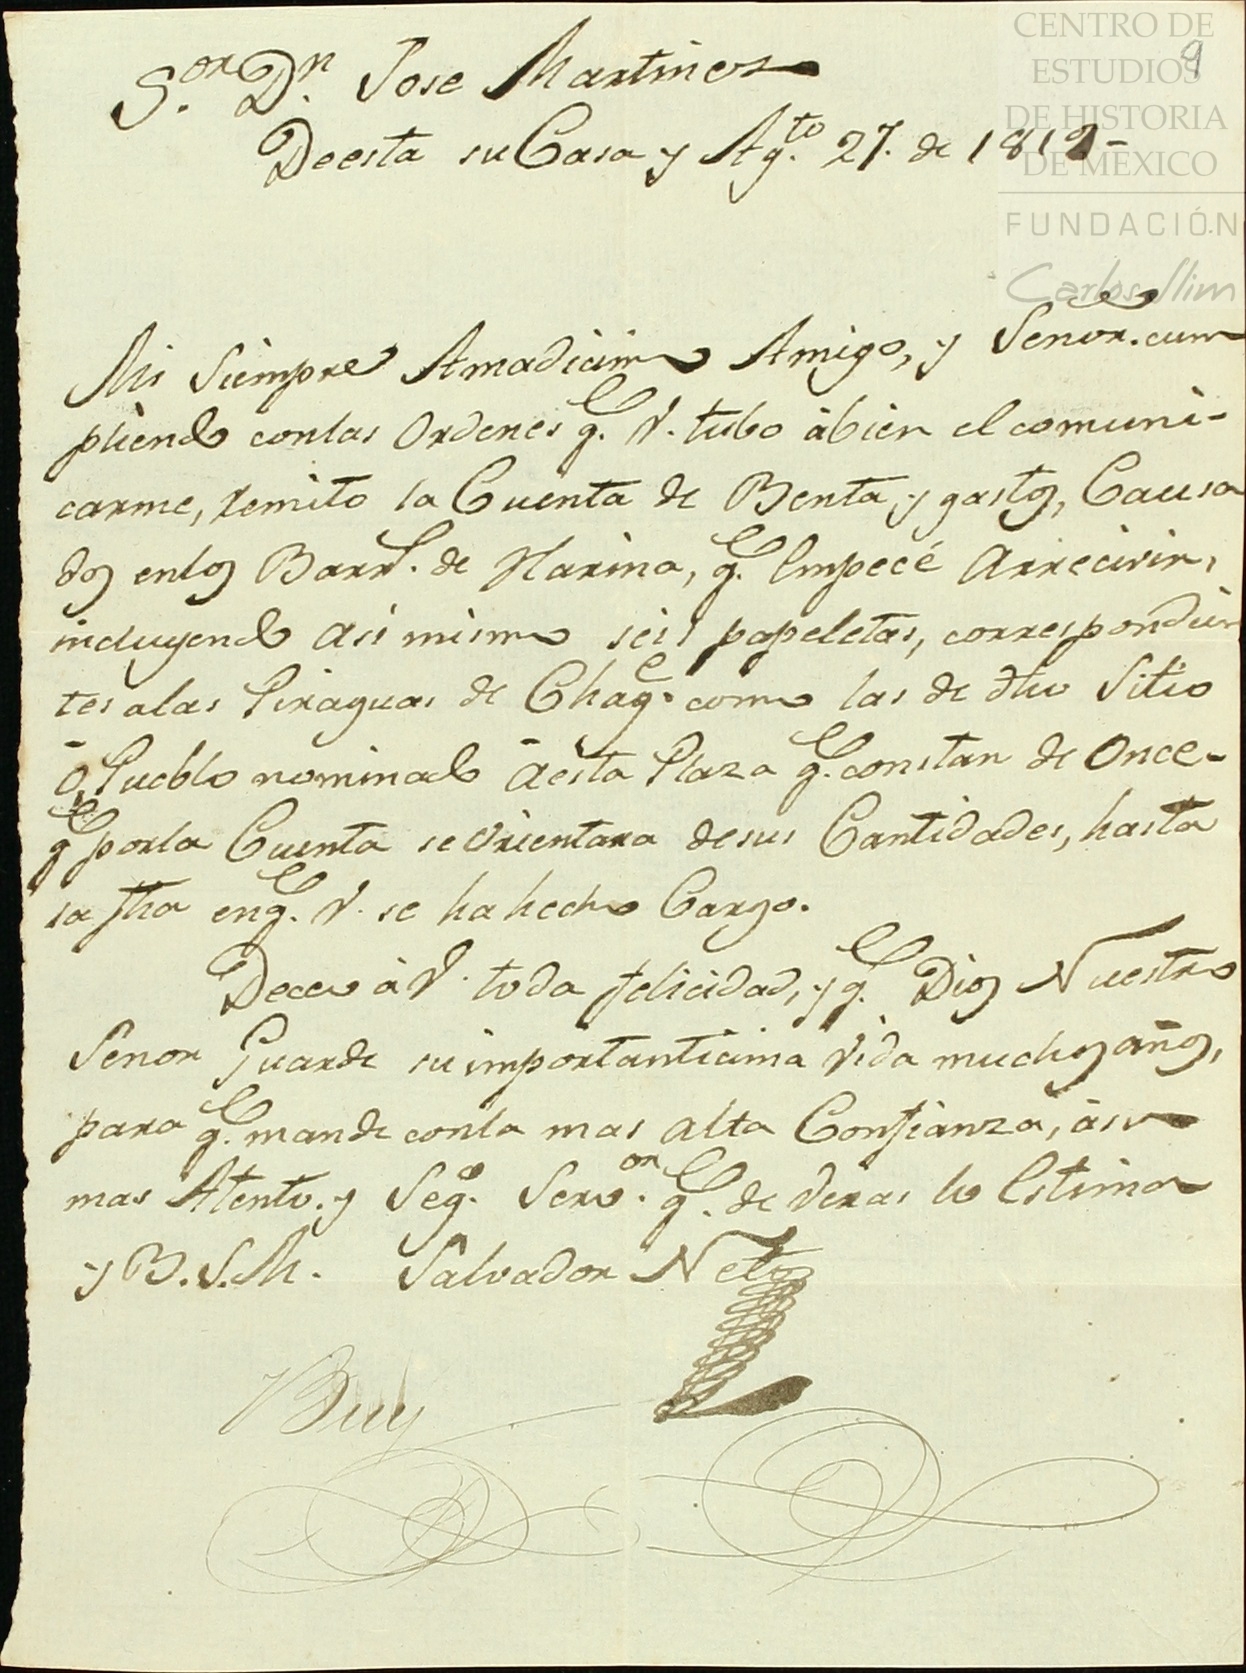 CENTRO DE
ESTUDIOS
DE HISTORIA
DE MÉXICO
FUNDACIÓN
Carlos Slim
9
S.or D.n Jose Martines
De esta su Casa y Ag.to 27. de 1812-
Mi Siempre Amadicimo Amigo, y Señor. cum
pliendo con las Ordenes q.e V. tubo àbien el comuni-
carme, remito la Cuenta de Benta, y gastos, Causa
dos enlos Barr.s de Harina, q.e Empecé Arrecivir,
incluyendo asi mismo seis papeletas, correspondien
tes alas Piraguas de Chag.e como las de dho Sitio
ô Pueblo nominado â esta Plaza q.e constan de Once-
q.e porla Cuenta se Orientara desus Cantidades, hasta
la fha enq.e V. se ha hecho Cargo.
Deceo à V. toda felicidad, y q.e Dios Nuestro
Señor Guarde su importanticima Vida muchos años,
para q.e mande conla mas alta Confianza, àsu
mas Atento. y Seg.o Serv.or q.e de Veras lo Estima
y B.S.M. Salvador Neto